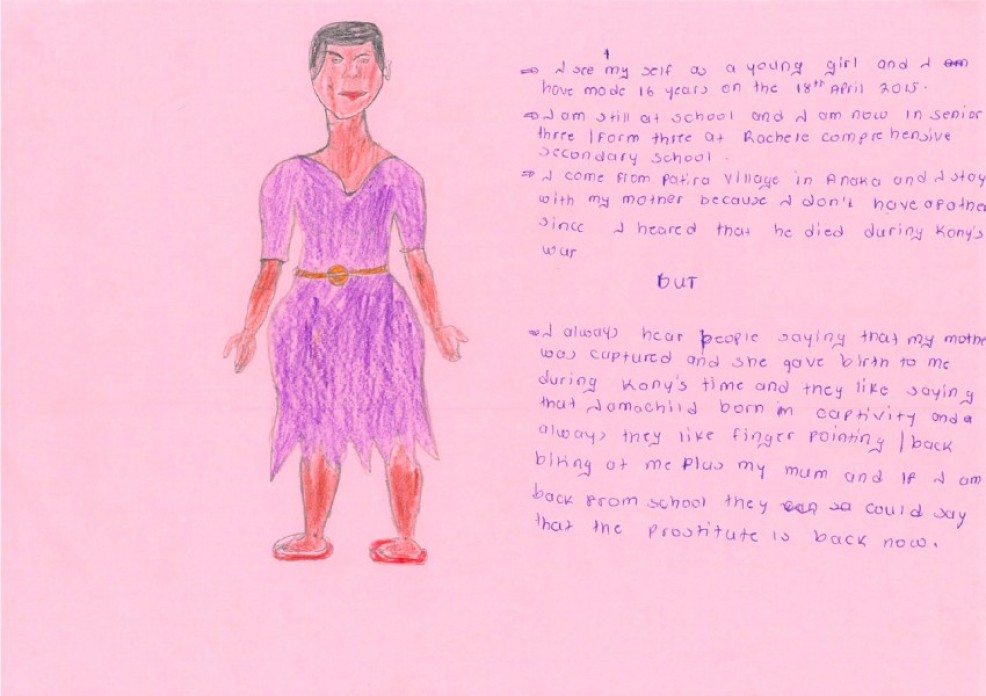 ⇒ I see my self as a young girl and I am
have made 16 years on the 18th April 2015.
⇒ I am still at school and I am now in senior
three /form three at Rachele comprehensive
secondary school.
⇒ I come from Patira village in Anaka and I stay
with my mother because I don't have a pather
since I heared that he died during Kony's
war
BUT
⇒ I always hear people saying that my mothe
was captured and she gave birth to me
during Kony's time and they like saying
that I am a child born in captivity and a
always they like finger pointing /back
biting at me plus my mum and if I am
back from school they could say
that the prostitute is back now.